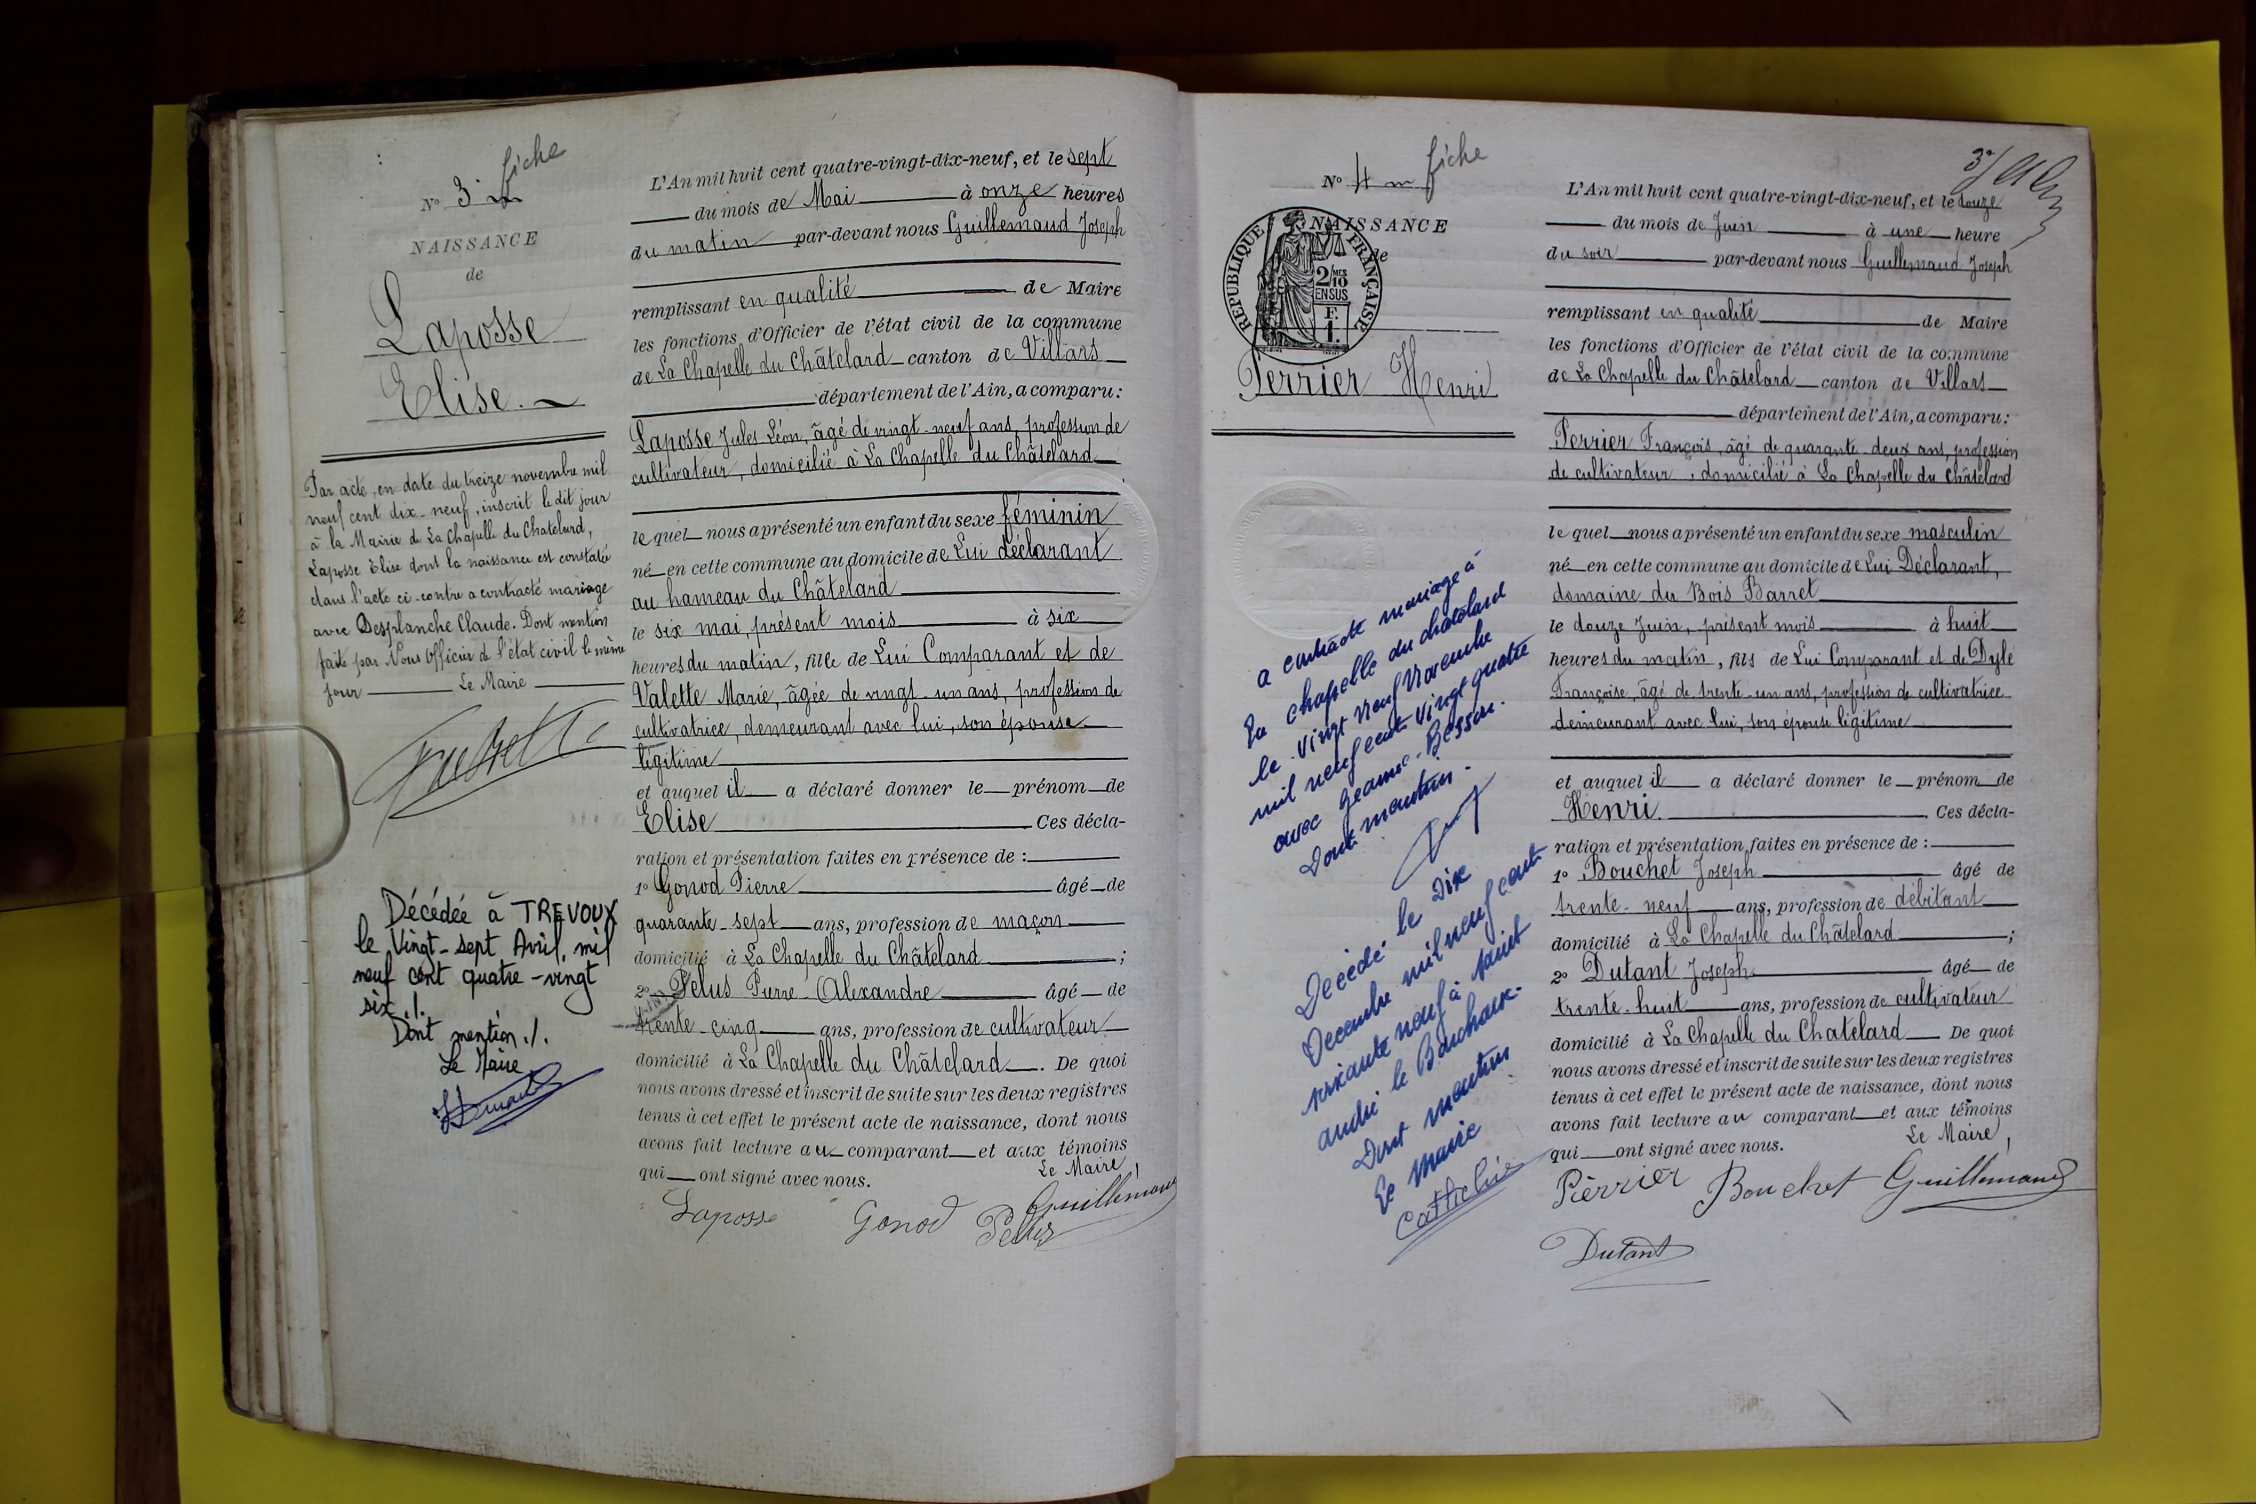 fiche
N° 3
NAISSANCE
de
Laposse
Elise.
Par acte, en date du treize novembre mil
neuf cent dix-neuf, inscrit le dit jour
à la Mairie de La Chapelle du Chatelard,
Laposse Elise dont la naissance est constatée
dans l'acte ci-contre a contracté mariage
avec Desplanche Claude. Dont mention
faite par Nous Officier de l'état civil le même
jour Le Maire
Décédée à TREVOUX
le Vingt-sept Avril, mil
neuf cent quatre-vingt
six ./.
Dont mention ./.
Le Maire
L'An mil huit cent quatre-vingt-dix-neuf, et le sept
du mois de Mai à onze heures
du matin par-devant nous Guillemaud Joseph
remplissant en qualité de Maire
les fonctions d'Officier de l'état civil de la commune
de La Chapelle du Châtelard canton de Villars
département de l'Ain, a comparu:
Laposse Jules Léon, âgé de vingt-neuf ans, profession de
cultivateur, domicilié à La Chapelle du Châtelard
le quel nous a présenté un enfant du sexe féminin
né en cette commune au domicile de Lui déclarant
au hameau du Châtelard
le six mai, présent mois à six
heures du matin, fille de Lui Comparant et de
Valette Marie, âgée de vingt-un ans, profession de
cultivatrice, demeurant avec lui, son épouse
légitime
et auquel il a déclaré donner le prénom de
Elise Ces décla-
ration et présentation faites en présence de :
1° Gonod Pierre âgé de
quarante-sept ans, profession de maçon
domicilié à La Chapelle du Châtelard ;
2° Pelus Pierre-Alexandre âgé de
trente-cinq ans, profession de cultivateur
domicilié à La Chapelle du Châtelard. De quoi
nous avons dressé et inscrit de suite sur les deux registres
tenus à cet effet le présent acte de naissance, dont nous
avons fait lecture au comparant et aux témoins
qui ont signé avec nous.
Le Maire,
Laposse Gonod Pelus Guillemaud
fiche
N° 4
NAISSANCE
de
REPUBLIQUE FRANÇAISE
2/10 MES
EN SUS
F.
1.
Perrier Henri
a contracté mariage à
La chapelle du chatelard
le vingt neuf Novembre
mil neuf cent vingt quatre
avec Jeanne Besson.
Dont mention.
Décédé le Dix
Decembre mil neuf cent
soixante neuf à saint
andré le Bouchoux.
Dont mention
Le Maire
L'An mil huit cent quatre-vingt-dix-neuf, et le douze
du mois de Juin à une heure
du soir par-devant nous Guillemaud Joseph
remplissant en qualité de Maire
les fonctions d'Officier de l'état civil de la commune
de La Chapelle du Châtelard canton de Villars
département de l'Ain, a comparu:
Perrier François, âgé de quarante-deux ans, profession
de cultivateur, domicilié à La Chapelle du Châtelard
le quel nous a présenté un enfant du sexe masculin
né en cette commune au domicile de Lui Déclarant,
domaine du Bois Barret
le douze Juin, présent mois à huit
heures du matin, fils de Lui Comparant et de Dylé
Françoise, âgé de trente-un ans, profession de cultivatrice
demeurant avec lui, son épouse légitime
et auquel il a déclaré donner le prénom de
Henri. Ces décla-
ration et présentation faites en présence de :
1° Bouchet Joseph âgé de
trente-neuf ans, profession de débitant
domicilié à La Chapelle du Châtelard ;
2° Dutant Joseph âgé de
trente-huit ans, profession de cultivateur
domicilié à La Chapelle du Chatelard De quoi
nous avons dressé et inscrit de suite sur les deux registres
tenus à cet effet le présent acte de naissance, dont nous
avons fait lecture au comparant et aux témoins
qui ont signé avec nous.
Le Maire,
Pèrrier Bouchet Guillemaud
Dutant